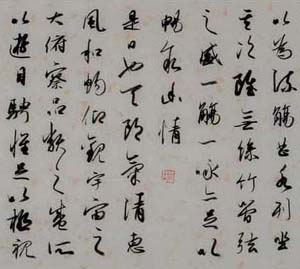 以為流觴曲水列坐
其次雖無絲竹管弦
之盛一觴一詠亦足以
暢敘幽情
是日也天朗氣清惠
風和暢仰觀宇宙之
大俯察品類之盛所
以遊目騁懷足以極視